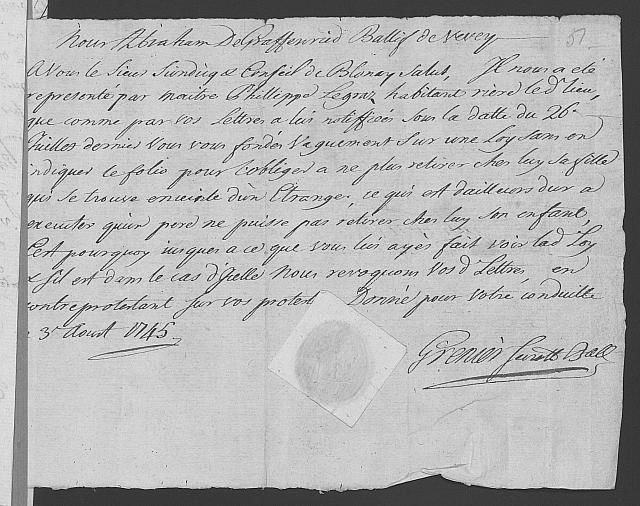 Nous Abraham DeGraffenried Ballif de Vevey
51
A Vous le Sieur Sindiq & Conseil de Blonay Salut, Il nous a été
representé par maitre Phillippe Legraz habitant riere led.t lieu,
que comme par vos lettres a lui notiffiées sous la datte du 26e
Juillet dernier Vous vous fondés Vaguement sur une Loy sans en
indiquer le folio pour l'obliger a ne plus retirer chez luy sa fille
qui se trouve enceinte d'un Etranger, ce qui est d'ailleurs dur a
executer qu'un pere ne puisse pas retirer chez luy son enfant,
C'est pourquoy jusques a ce que Vous lui ayés fait voir lad. Loy
& s'il est dans le cas d'Icelle Nous revoquons Vosd. Lettres, en
contreprotestant sur vos protest Donné pour Votre conduitte
3e Aoust 1745
Grenier